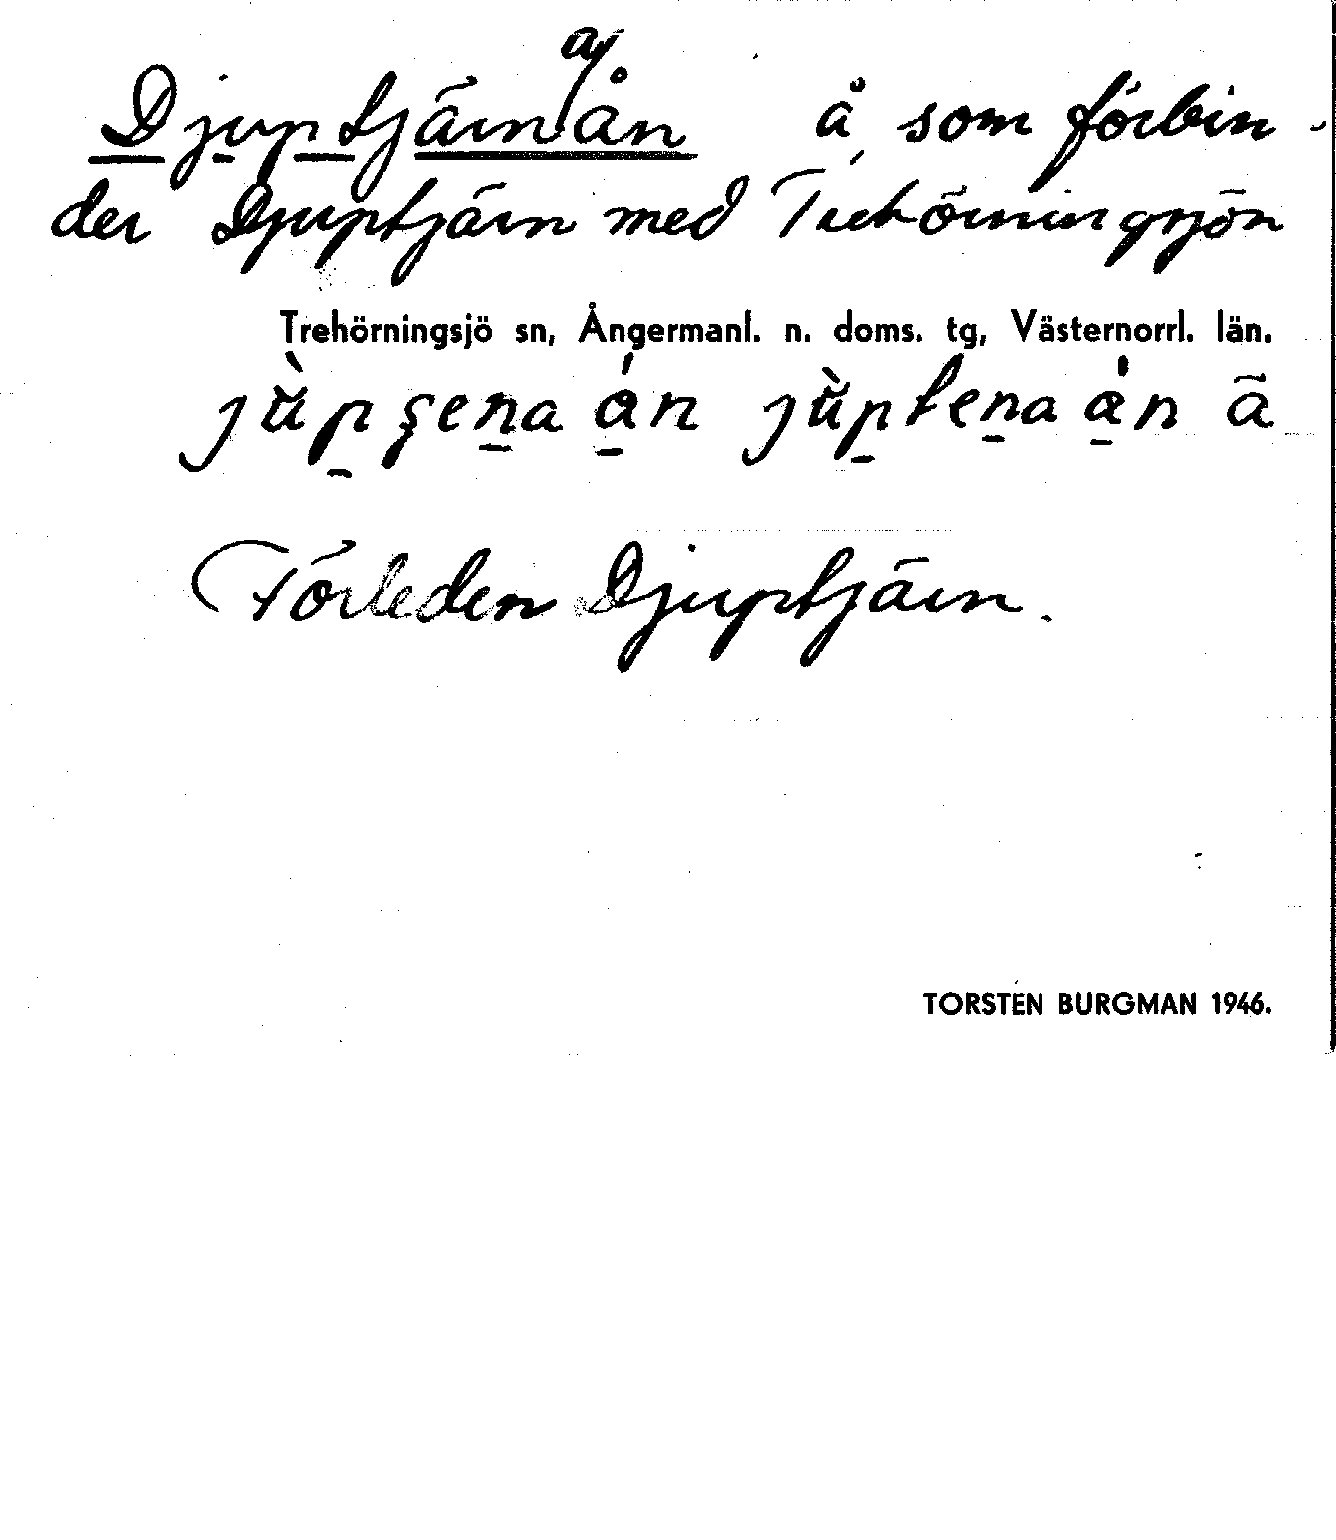 Djuptjärnaån å som förbin-
der Djuptjärn med Trehörningsjön
Trehörningsjö sn, Ångermanl. n. doms. tg, Västernorrl. län.
Förleden Djuptjärn.
TORSTEN BURGMAN 1946.